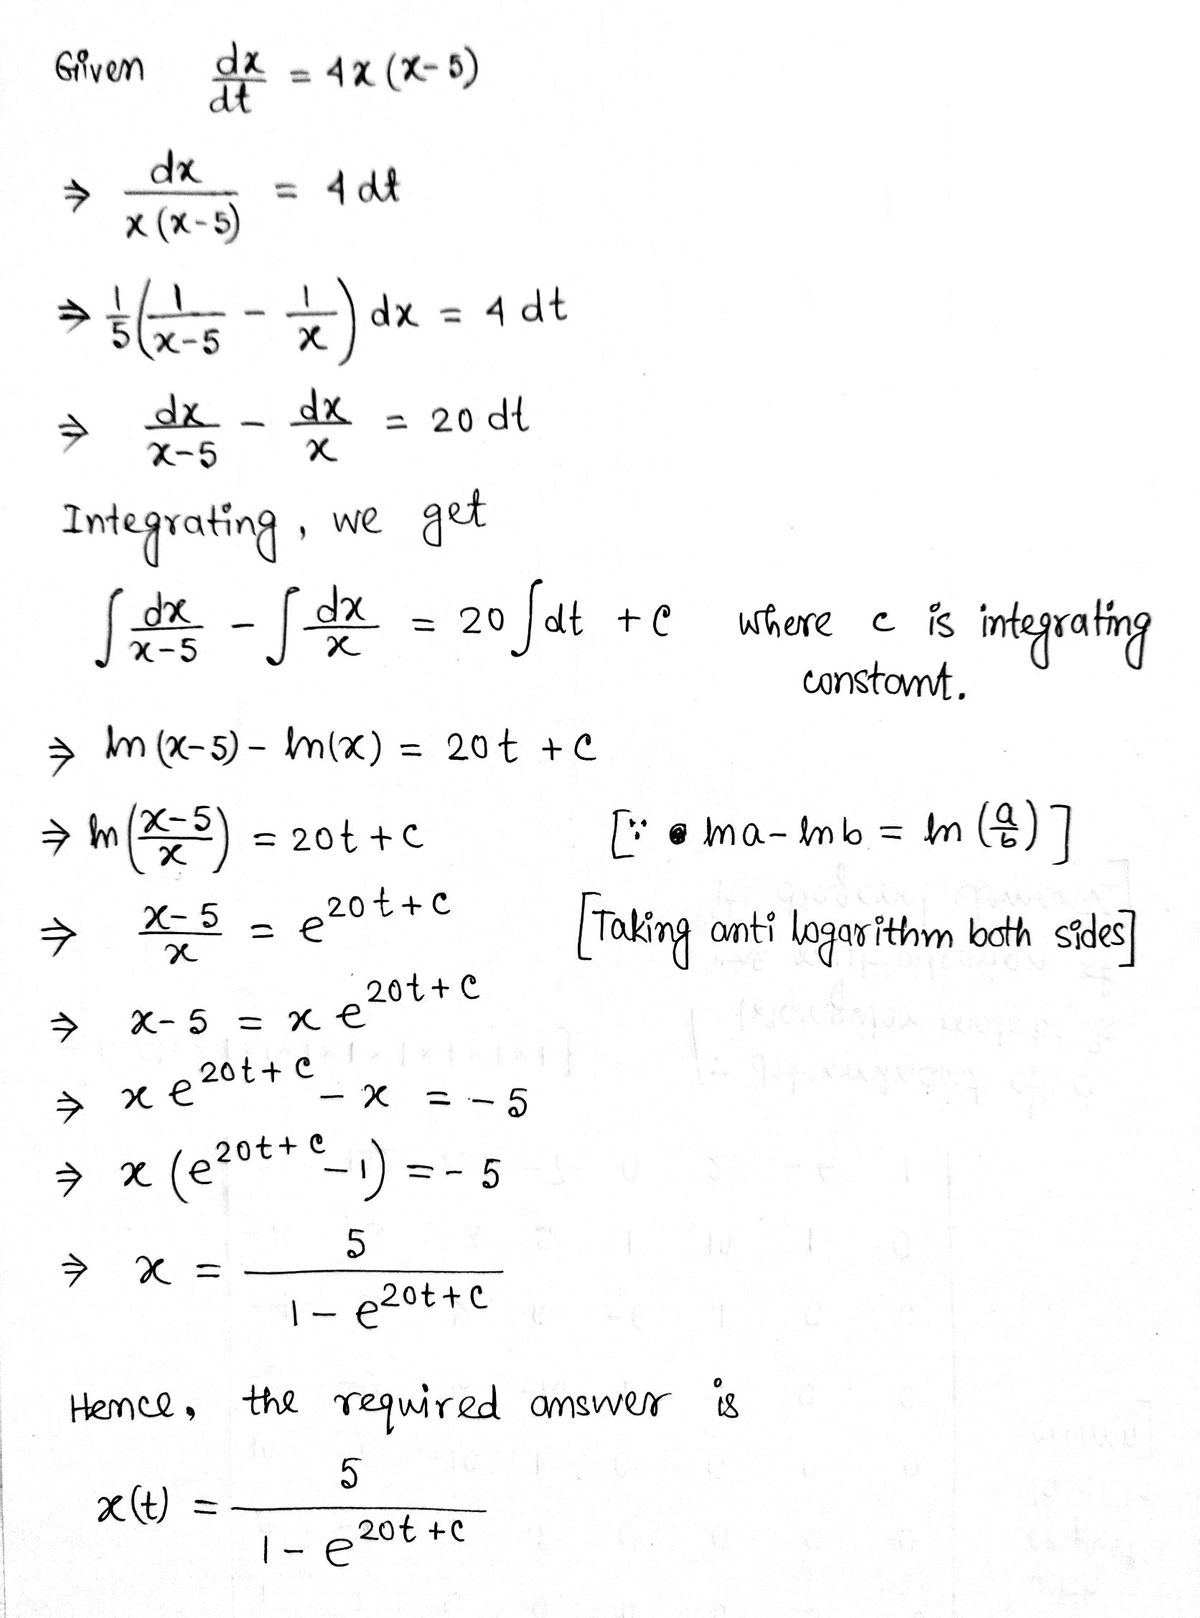 Given dx/dt = 4x (x-5)
⇒ dx/x(x-5) = 4 dt
⇒ 1/5 (1/x-5 - 1/x) dx = 4 dt
⇒ dx/x-5 - dx/x = 20 dt
Integrating, we get
∫ dx/x-5 - ∫ dx/x = 20 ∫ dt + c where c is integrating
constant.
⇒ ln (x-5) - ln(x) = 20t + c
⇒ ln (x-5/x) = 20t + c [∵ ln a - ln b = ln (a/b)]
⇒ x-5/x = e^20t+c [Taking anti logarithm both sides]
⇒ x-5 = x e^20t+c
⇒ x e^20t+c - x = -5
⇒ x (e^20t+c - 1) = -5
⇒ x = 5/1 - e^20t+c
Hence, the required answer is
x(t) = 5/1 - e^20t+c